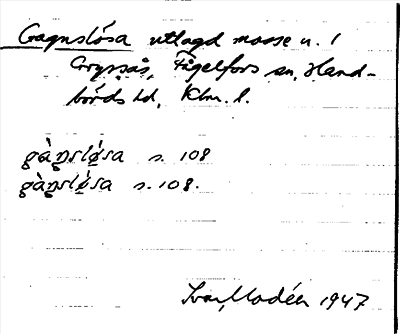 Gagnslösa utlagd mosse u. /
Gryssås, Fågelfors sn, Hand-
börds hd, Klm. l.
gàŋslø̀sa s. 108
gàŋslø̀sa s. 108.
Ivar Modéer 1947